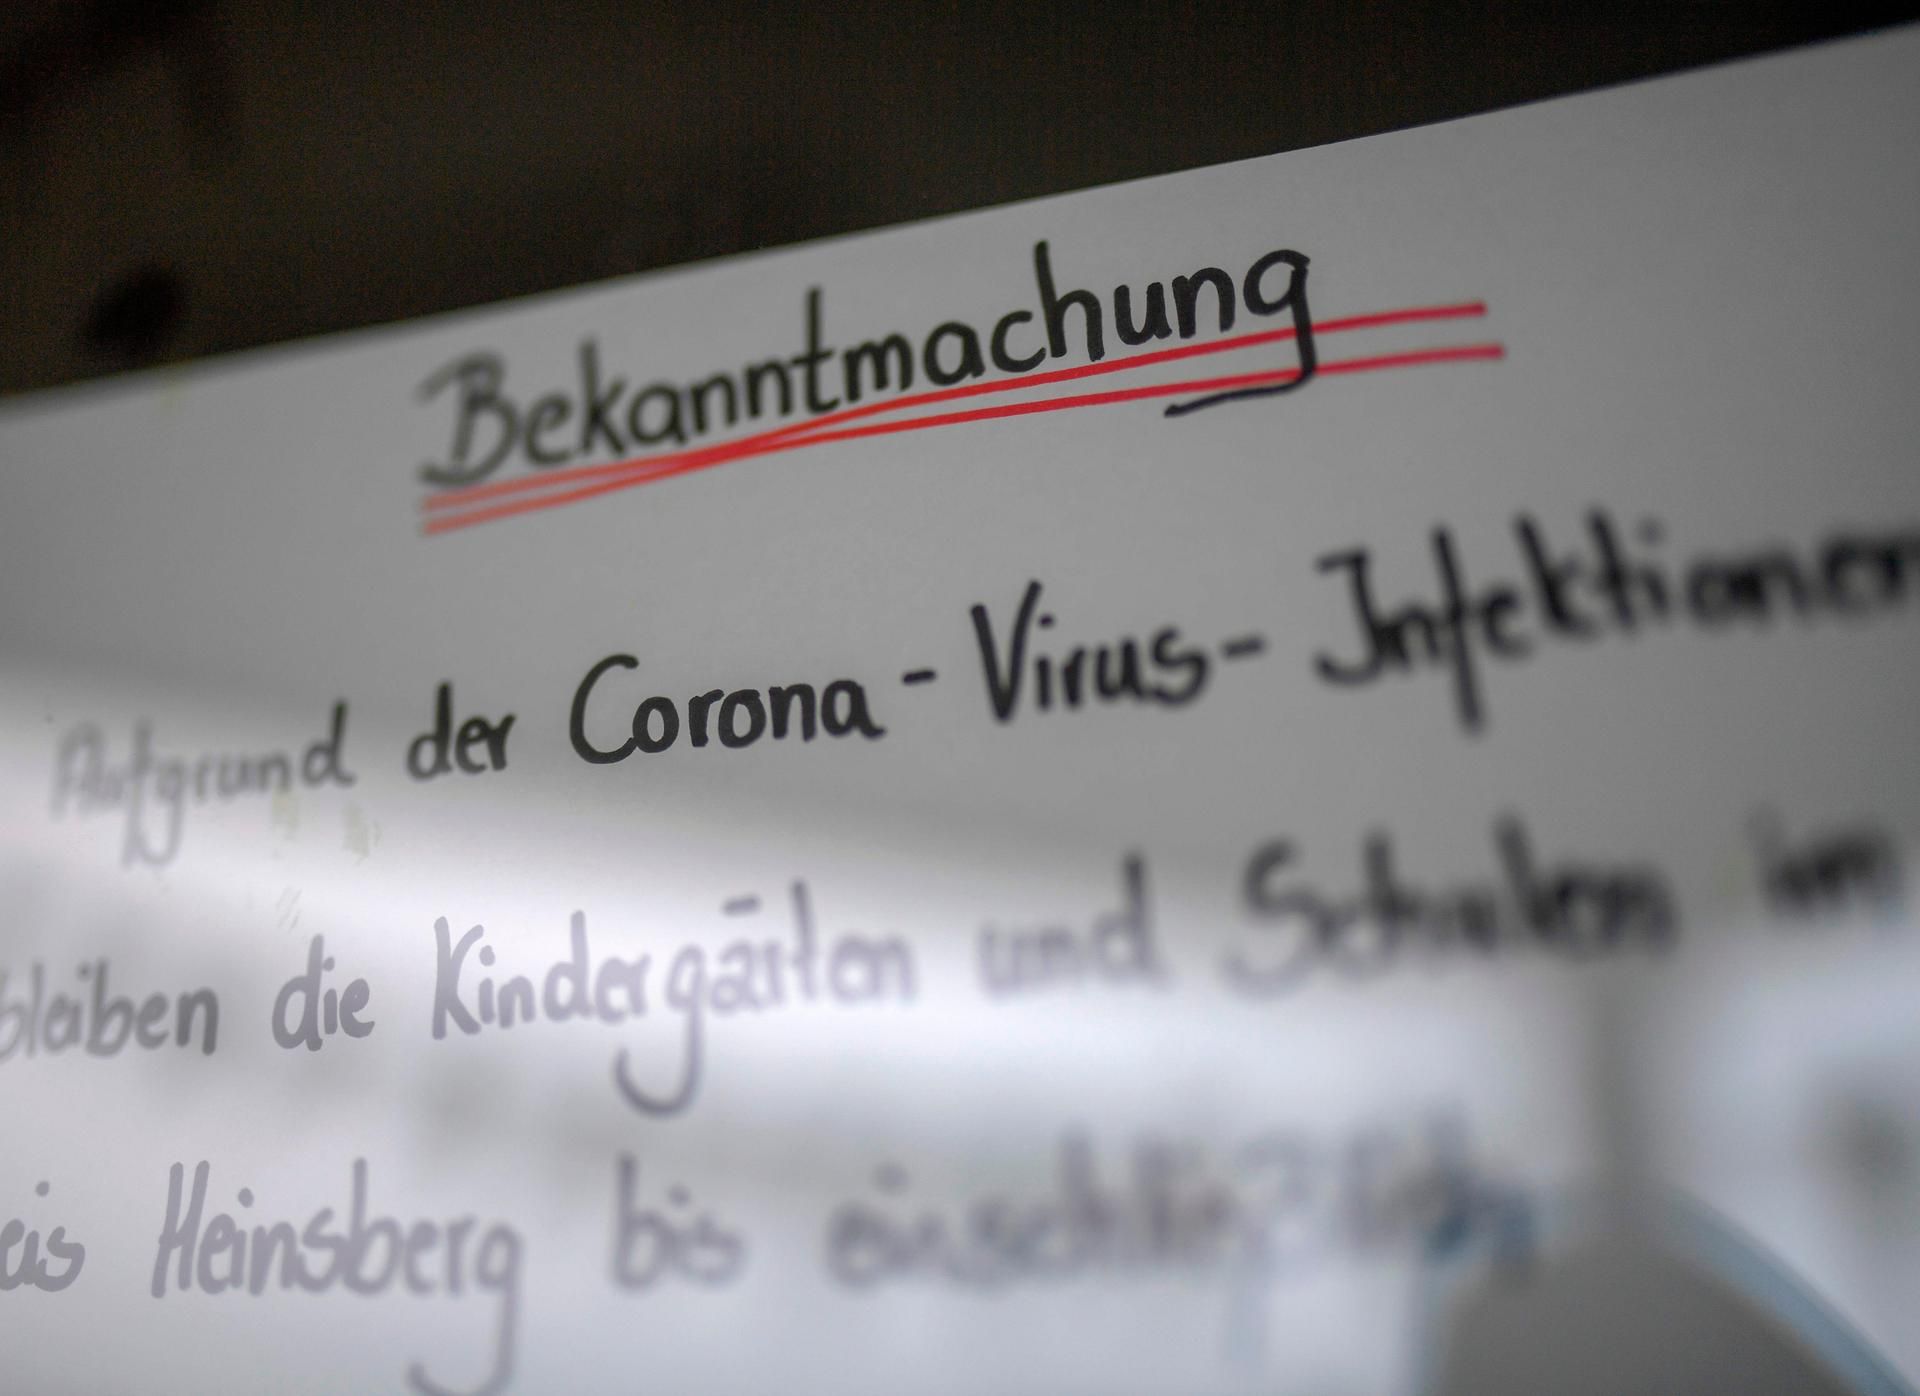 Bekanntmachung
Aufgrund der Corona-Virus-Infektionen
bleiben die Kindergärten und Schulen im
eis Heinsberg bis einschließlich